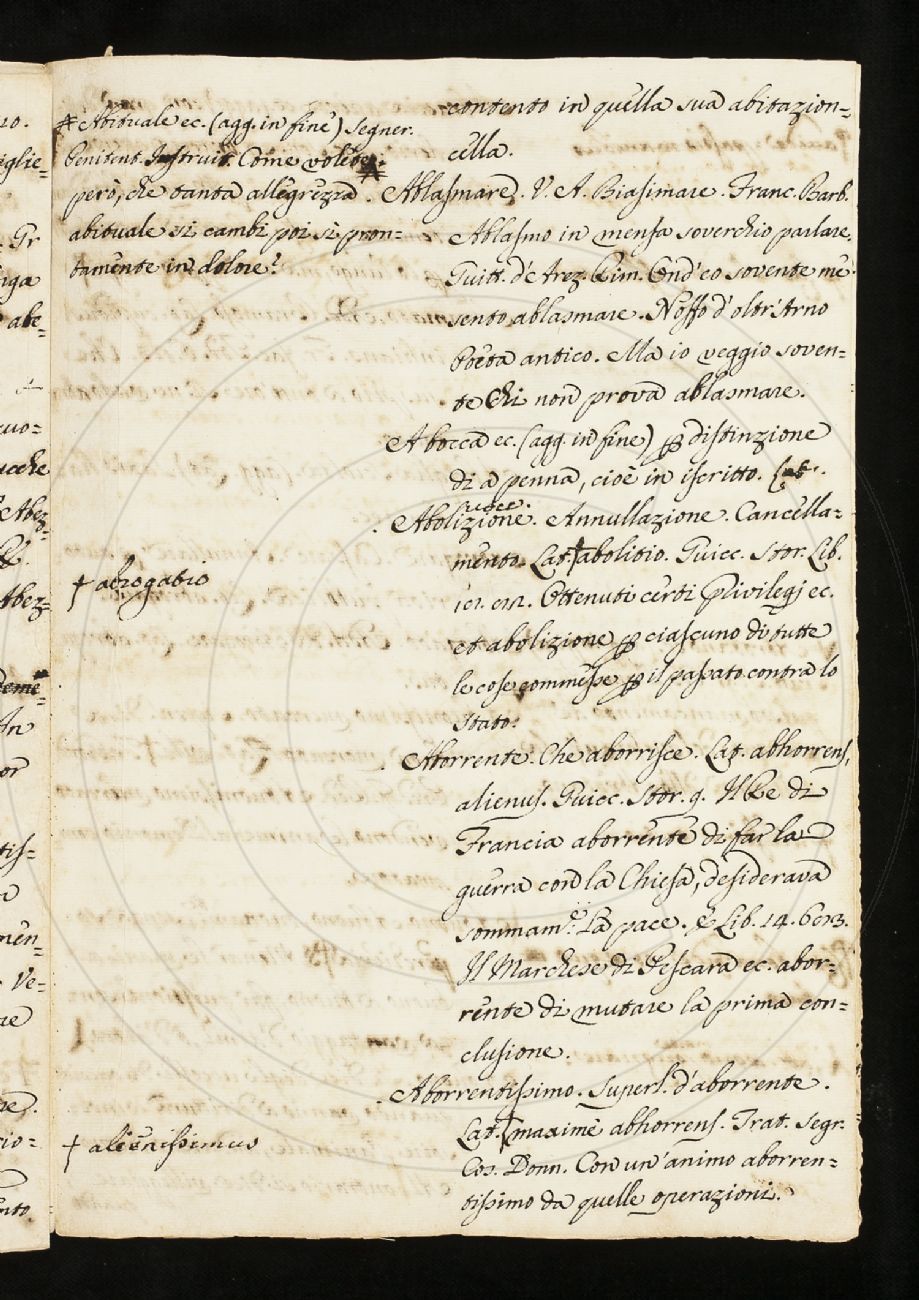 contento in quella sua abitazion=
cella.
Abituale ec. (agg. in fine) Segner.
Penitent. Instruit. Come volete
però, che tanta allegrezza
abituale si cambi poi sì pron=
tamente in dolore?
Ablasmare. V. A. Biasimare. Franc. Barb.
Ablasmo in mensa soverchio parlare.
Guitt. d'Arez. Rim. Ond'eo sovente me
sento ablasmare. Noffo d'oltr'Arno
Poeta antico. Ma io veggio soven=
te Chi non prova ablasmare.
A bocca ec. (agg. in fine) p distinzione
di a penna, cioè in iscritto.
voce.
Abolizione. Annullazione. Cancella=
mento. Lat. † abolitio. Guicc. Stor. Lib.
† abrogatio
Ottenuti certi Privilegj ec.
et abolizione p ciascuno di tutte
le cose commesse p il passato contra lo
stato.
Aborrente. Che aborrisce. Lat. abhorrens,
alienus. Guicc. Stor. 9. Il Re di
Francia aborrente di far la
guerra con la Chiesa, desiderava
sommam.te La pace. e Lib. 14. 6013.
Il Marchese di Pescara ec. abor=
rente di mutare la prima con=
clusione.
Aborrentissimo. Superl. d'aborrente.
Lat. † maximè abhorrens. Trat. Segr.
† alienissimus
Cos. Donn. Con un'animo aborren=
tissimo da quelle operazioni.